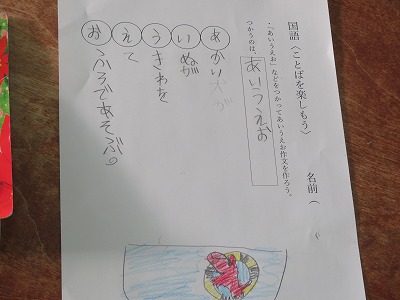 国語〈ことばを楽しもう〉 名前（
・「あいうえお」などをつかってあいうえお作文を作ろう。
つかうのは、 あいうえお
あかい犬が
いぬが
うきわを
えて
おふろであそぶ。